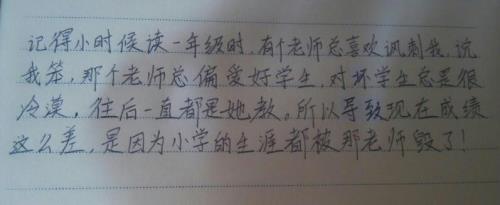 记得小时候读一年级时，有个老师总喜欢讽刺我，说
我笨，那个老师总偏爱好学生，对坏学生总是很
冷漠，往后一直都是她教。所以导致现在成绩
这么差，是因为小学的生涯都被那老师毁了！